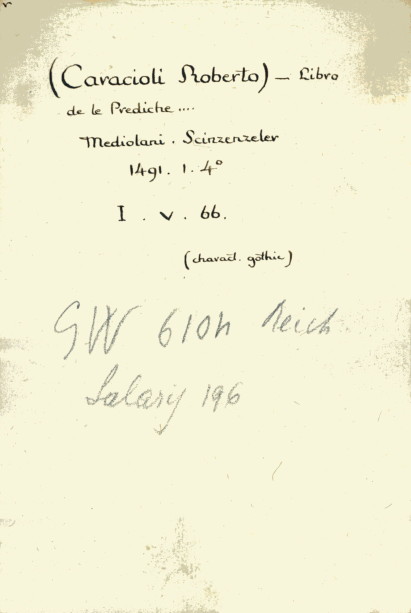 (Caracioli Roberto) — Libro
de le Prediche ....
Mediolani . Scinzenzeler
1491 . 1 . 4°
I . v . 66.
(charact. gothic)
GW 610n Reich
Salary 196